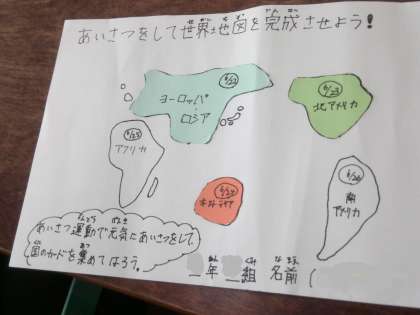 あいさつをして世界地図を完成させよう！
6/22
ヨーロッパ・
ロシア
6/23
北アメリカ
アフリカ
オーストラリア
南
アメリカ
あいさつ運動で元気にあいさつをして、
国のカードを集めてはろう。
年 組 名前（